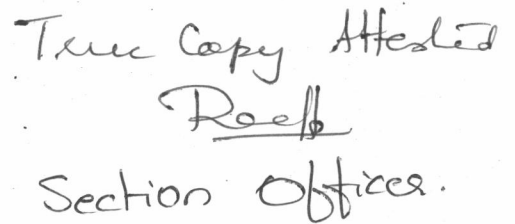 True Copy Attested
Section Officer.